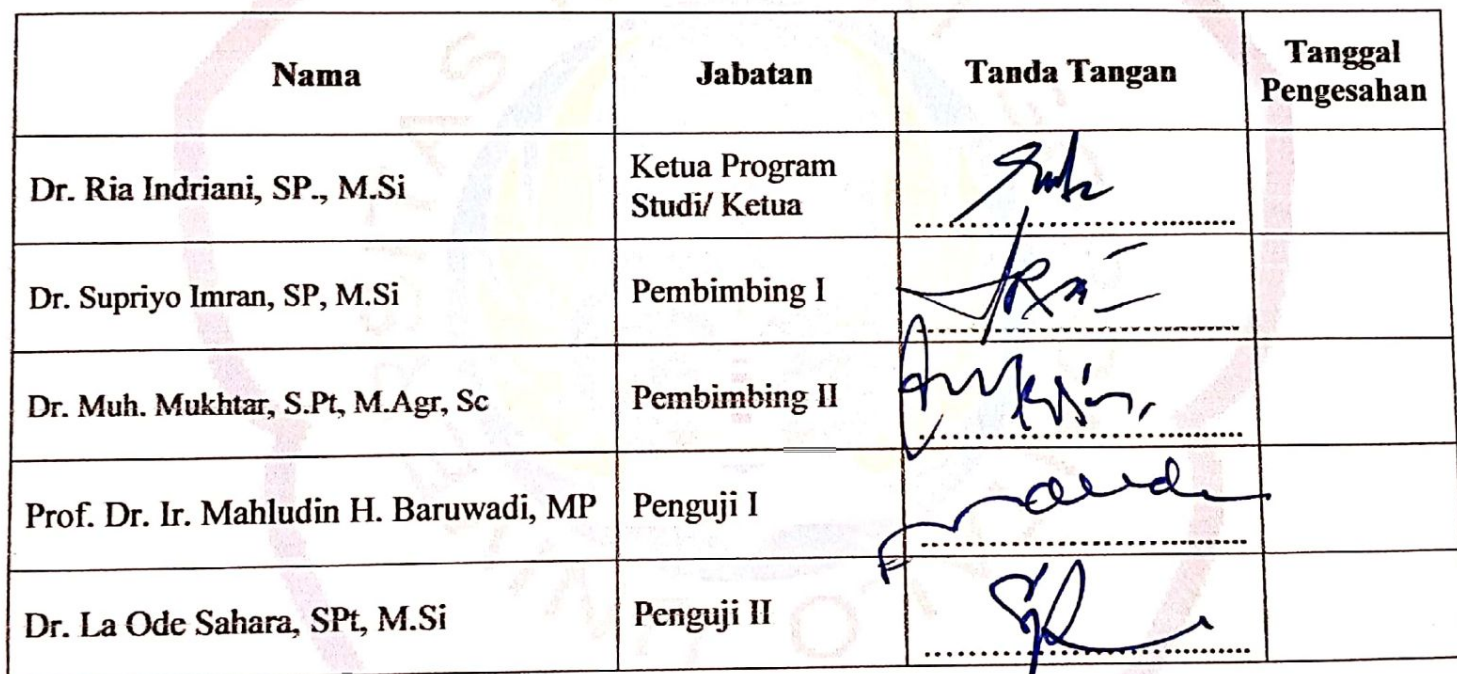 Nama Jabatan Tanda Tangan Tanggal
Pengesahan
Dr. Ria Indriani, SP., M.Si Ketua Program
Studi/ Ketua
Dr. Supriyo Imran, SP, M.Si Pembimbing I
Dr. Muh. Mukhtar, S.Pt, M.Agr, Sc Pembimbing II
Prof. Dr. Ir. Mahludin H. Baruwadi, MP Penguji I
Dr. La Ode Sahara, SPt, M.Si Penguji II